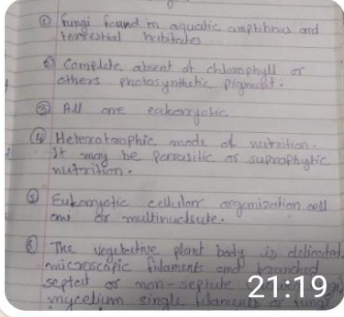 ① fungi found in aquatic amphibious and
terrestial habitates
② Complete absent of chlorophyll or
others photosynthetic pigment.
③ All are eukaryotic
④ Heterotrophic mode of nutrition.
It may be parasitic or saprophytic
nutrition.
⑤ Eukaryotic cellular organization cell
or multinucleate.
⑥ The vegetative plant body is
microscopic filaments and branched
septet or non-septate
mycelium single filaments or fungi
21:19